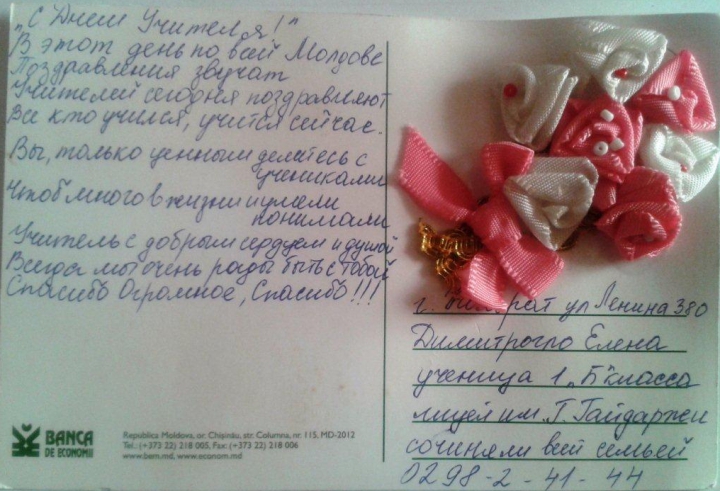 „С Днем Учителя!"
В этот день по всей Молдове
Поздравления звучат
Учителей сегодня поздравляют
Все кто учился, учится сейчас.
Вы, только ценным делитесь с
учениками
Чтоб много в жизни умели
понимали
Учитель с добрым сердцем и душой
Всегда мы очень рады быть с тобой
Спасибо Огромное, Спасибо!!!
BANCA
DE ECONOMII
Republica Moldova, or. Chişinău, str. Columna, nr. 115, MD-2012
Tel.: (+373 22) 218 005, Fax: (+373 22) 218 006
www.bem.md, www.econom.md
г. ул Ленина 380
Димитрогло Елена
ученица 1 „Б" класса
лицей им. Г. Гайдаржи
сочиняли всей семьей
0298-2-41-44